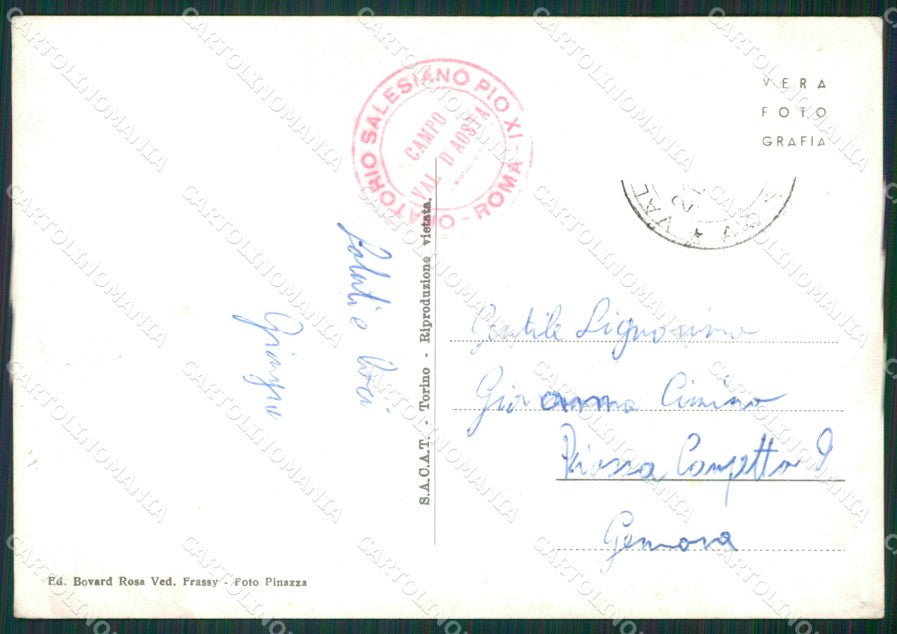 ORATORIO SALESIANO PIO XI - ROMA -
CAMPO
VAL D'AOSTA
VERA
FOTO
GRAFIA
VAL
Saluti e
S.A.C.A.T. - Torino - Riproduzione vietata.
Gentile Signorina
Giovanna Cimino
Piazza Campetto 8
Genova
Ed. Bovard Rosa Ved. Frassy - Foto Pinazza
CARTOLINOMANIA